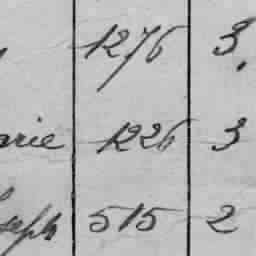 1276 3.
arie 1226 3
seph 515 2